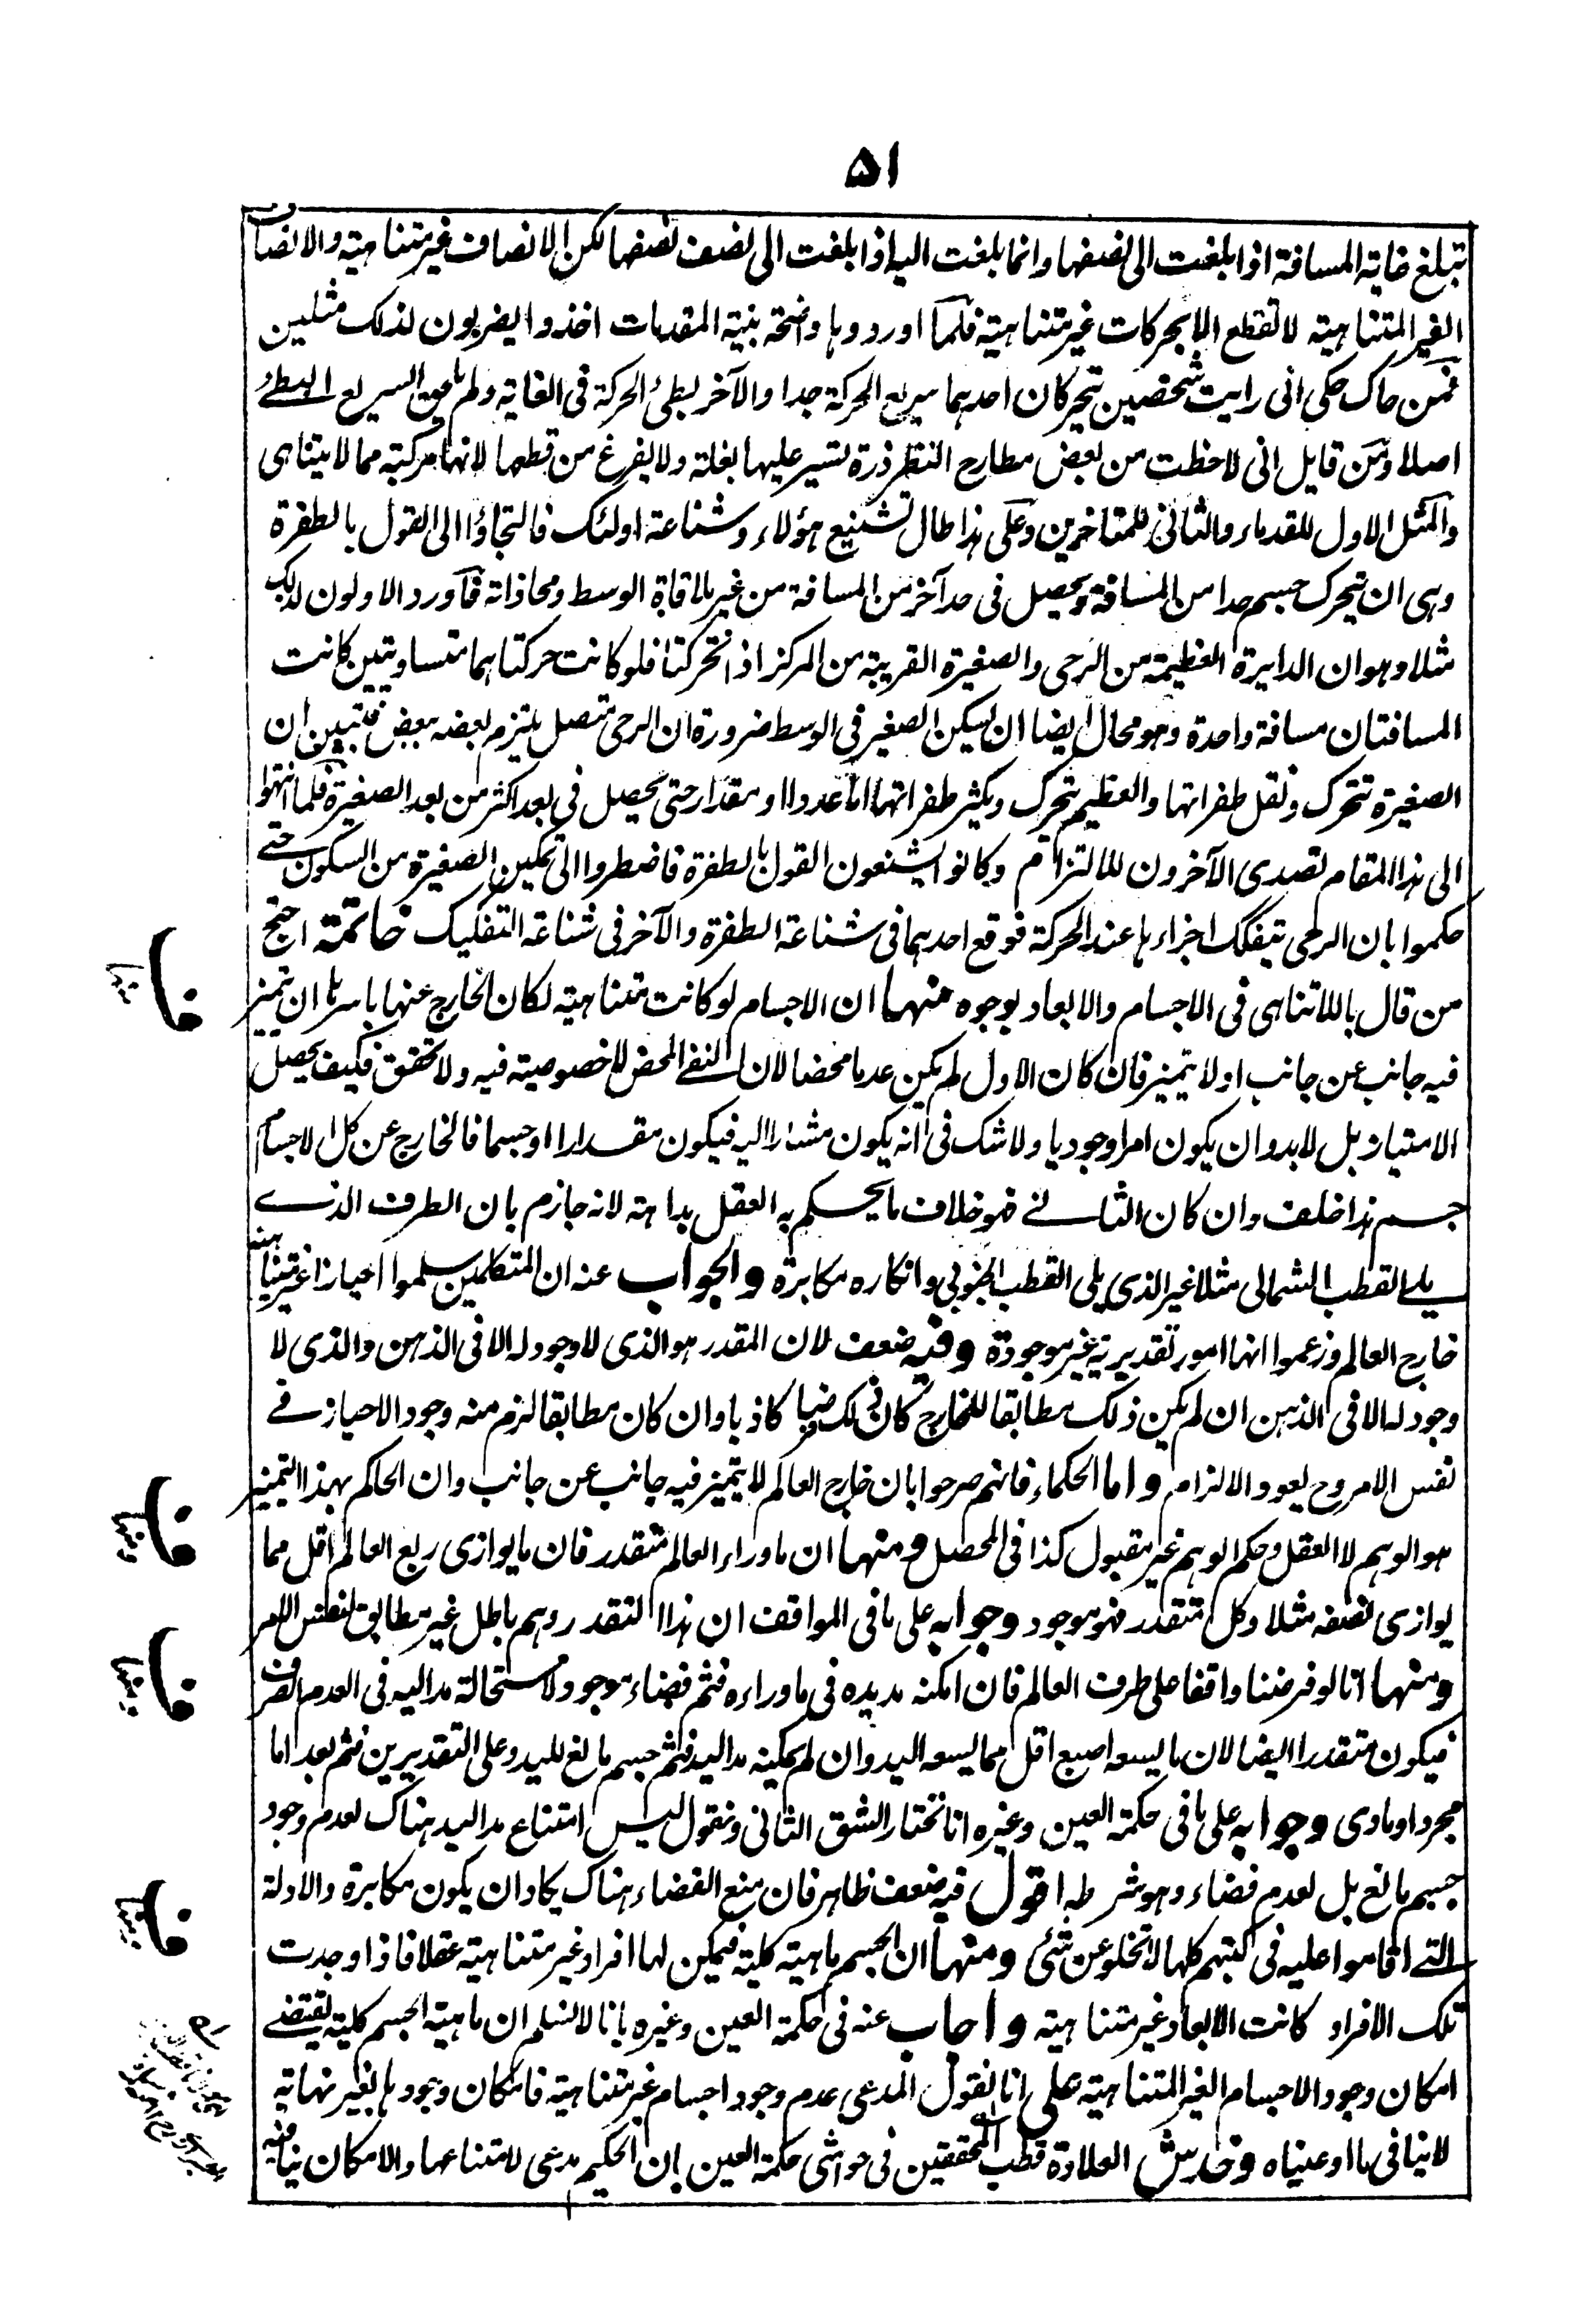 ۵۱
تبلغ غاية المسافة اذا بلغت الى نصفها وانما بلغت اليه اذا بلغت الى نصف نصفها لكن الانصاف غير متناهية والانصاف
الغير المتناهية لا تقطع الا بحركات غير متناهية فلما اوردوها واضحة بنية المقدمات اخذوا يضربون لذلك مثلين
فمن حاك حكى انى رايت شخصين تتحركان احدهما سريع الحركة جدا والآخر بطئ الحركة فى الغاية ولم يلحق السريع البطئ
اصلا ومن قايل انى لاحظت من بعض مطارح النظر ذرة تسير عليها بغلة ولا يفرغ من قطعها لانها مركبة مما لا يتناهى
والمثل الاول للقدماء والثانى للمتاخرين وعلى هذا طال تشنيع هؤلاء وشناعة اولئك فالتجاؤا الى القول بالطفرة
وهى ان يتحرك جسم حدا من المسافة ويحصل فى حد آخر من المسافة من غير ملاقاة الوسط ومحاذاته فاورد الاولون لذلك
مثلا وهو ان الدايرة العظيمة من الرحى والصغيرة القريبة من المركز اذا تحركتا فلو كانت حركتاهما متساويتين كانت
المسافتان مسافة واحدة وهو محال ايضا ان يسكن الصغير فى الوسط ضرورة ان الرحى متصل يلتزم بعضه ببعض فتبين ان
الصغيرة تتحرك وتقل طفراتها والعظيم يتحرك ويكثر طفراتها اما عددا او مقدارا حتى يحصل فى بعد اكثر من بعد الصغيرة فلما انتهوا
الى هذا المقام تصدى الآخرون للالتزام وكانوا يشنعون القول بالطفرة فاضطروا الى تمكين الصغيرة من السكون حتى
حكموا بان الرحى تتفكك اجزاءها عند الحركة فوقع احدهما فى شناعة الطفرة والآخر فى شناعة التفكيك خاتمة احتج
من قال باللاتناهى فى الاجسام والابعاد بوجوه منها ان الاجسام لو كانت متناهية لكان الخارج عنها باسرها ان يتميز
فيه جانب عن جانب او لا يتميز فان كان الاول لم يكن عدما محضا لان النفى المحض لا خصوصية فيه ولا تحقق فكيف يحصل
الامتياز بل لا بد وان يكون امرا وجوديا ولا شك فى انه يكون مشارا اليه فيكون مقدارا او جسما فالخارج عن كل الاجسام
جسم هذا خلف وان كان الثانى فهو خلاف ما يحكم به العقل بداهة لانه جازم بان الطرف الذى
يلى القطب الشمالى مثلا غير الذى يلى القطب الجنوبى وانكاره مكابرة والجواب عنه ان المتكلمين سلموا احيازا غير متناهية
خارج العالم وزعموا انها امور تقديرية غير موجودة وفيه ضعف لان المقدر هو الذى لا وجود له الا فى الذهن والذى لا
وجود له الا فى الذهن ان لم يكن ذلك مطابقا للخارج كان ذلك فرضيا كاذبا وان كان مطابقا لزم منه وجود الاحياز فى
نفس الامر وح يعود الالزام واما الحكماء فانهم صرحوا بان خارج العالم لا يتميز فيه جانب عن جانب وان الحاكم بهذا التميز
هو الوهم لا العقل وحكم الوهم غير مقبول كذا فى المحصل ومنها ان ما وراء العالم متقدر فان ما يوازى ربع العالم اقل مما
يوازى نصفه مثلا وكل متقدر فهو موجود وجوابه على ما فى المواقف ان هذا التقدر وهم باطل غير مطابق لنفس الامر
ومنها انا لو فرضنا واقفا على طرف العالم فان امكنه مد يده فى ما وراءه فثم فضاء موجود لاستحالة مد اليد فى العدم الصرف
فيكون متقدرا ايضا لان ما يسعه اصبع اقل مما يسعه اليد وان لم يمكنه مد اليد فثم جسم مانع لليد وعلى التقديرين فثم بعد اما
مجرد او مادى وجوابه على ما فى حكمة العين وغيره انا نختار الشق الثانى ونقول ليس امتناع مد اليد هناك لعدم وجود
جسم مانع بل لعدم فضاء وهو شرطه اقول فيه ضعف ظاهر فان منع الفضاء هناك يكاد ان يكون مكابرة والادلة
التى اقاموا عليه فى كتبهم كلها لا تخلو عن شئ ومنها ان الجسم ماهية كلية فيمكن لها افراد غير متناهية عقلا فاذا وجدت
تلك الافراد كانت الابعاد غير متناهية واجاب عنه فى حكمة العين وغيره بانا لا نسلم ان ماهية الجسم كلية يقتضى
امكان وجود الاجسام الغير المتناهية على انا نقول المدعى عدم وجود اجسام غير متناهية فامكان وجودها بغير نهاية
لا ينافى ما ادعيناه وخدش العلاوة قطب المحققين فى حواشى حكمة العين بان الحكيم مدعى لامتناعها والامكان ينافيه
ف
ف
ف
ف